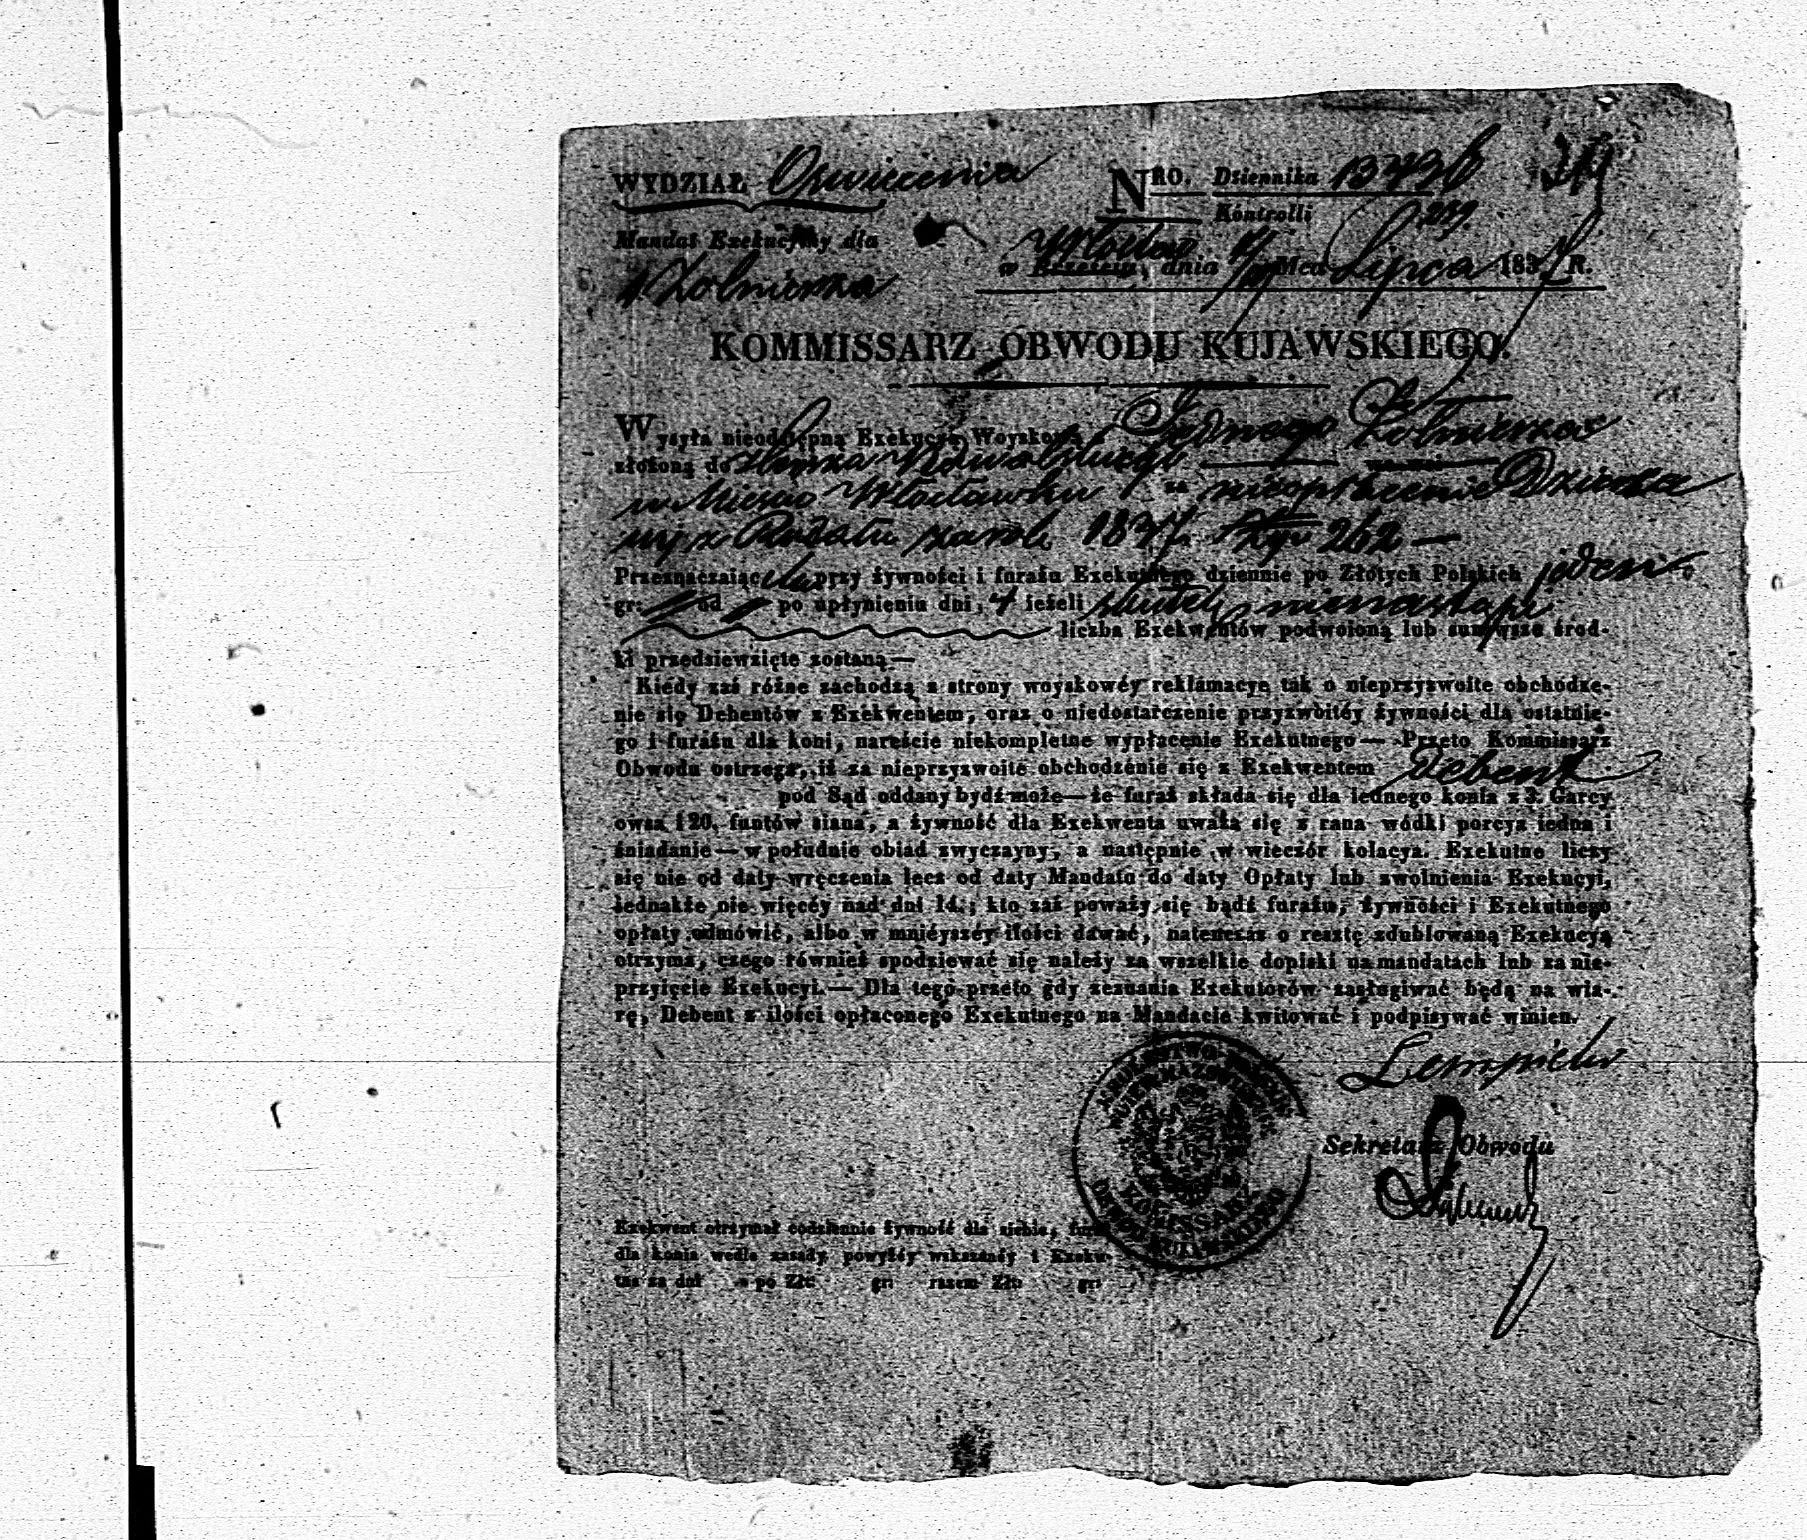 WYDZIAŁ Oswiecenia
NRO. Dziennika 13436
Kontrolli 259.
Mandat Exekucyiny dla
1 Zołnierza
w Brzesciu, dnia Mca Lipca 183 R.
KOMMISSARZ OBWODU KUJAWSKIEGO.
Wysyła nieodstępną Exekucyą Woyskową z Jednego Zołnierza
złożoną do
w Miescie Włocławku za nieopłacenie Dzierza
wy z 183 262 —
Przeznaczaiąc dla przy żywności i furażu Exekutnego dziennie po Złotych Polskich jeden
gr: od po upłynieniu dni, 4 ieżeli skutek nienastąpi
liczba Exekwentów podwoioną lub surowsze środ-
ki przedsiewzięte zostaną —
Kiédy zaś różne zachodzą z strony woyskowéy reklamacye tak o nieprzyzwoite obchodze-
nie się Debentów z Exekwentem, oraz o niedostarczenie przyzwoitéy żywności dla ostatnie-
go i furażu dla koni, nareście niekompletne wypłacenie Exekutnego — Przeto Kommissarz
Obwodu ostrzega, iż za nieprzyzwoite obchodzenie się z Exekwentem Debent
pod Sąd oddany bydź może — że furaż składa się dla iednego konia z 3. Garcy
owsa i 20. funtów siana, a żywność dla Exekwenta uważa się z rana wódki porcya iedna i
śniadanie — w południe obiad zwyczayny, a następnie w wieczór kolacya. Exekutne liczy
się nie od daty wręczenia lecz od daty Mandatu do daty Opłaty lub zwolnienia Exekucyi,
iednakże nie więcéy nad dni 14.; kto zaś poważy się bądź furażu, żywności i Exekutnego
opłaty odmówić, albo w mniéyszéy ilości dawać, natenczas o resztę zdublowaną Exekucyą
otrzyma, czego również spodziewać się należy za wszelkie dopiski na mandatach lub za nie-
przyięcie Exekucyi. — Dla tego przeto gdy zeznania Exekutorów zasługiwać będą na wia-
rę, Debent z ilości opłaconego Exekutnego na Mandacie kwitować i podpisywać winien.
KOMMISSARZ
OBWODU KUJAWSKIEGO
Sekretarz Obwodu
Exekwent otrzymał codziennie żywność dla siebie, furaż
dla konia wedle zasady powyżéy wskazanéy i Exeku-
tne za dni a po Złt: gr: razem Złt: gr: